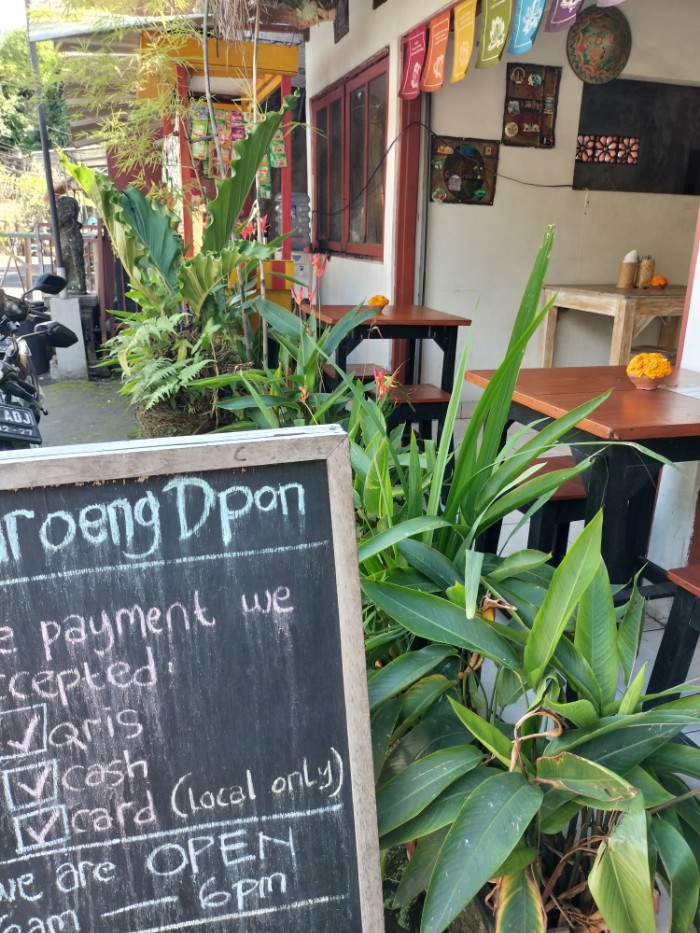 aroeng Dpon
e payment we
ccepted:
Qris
cash
card (local only)
we are OPEN
6am — 6pm
ADJ